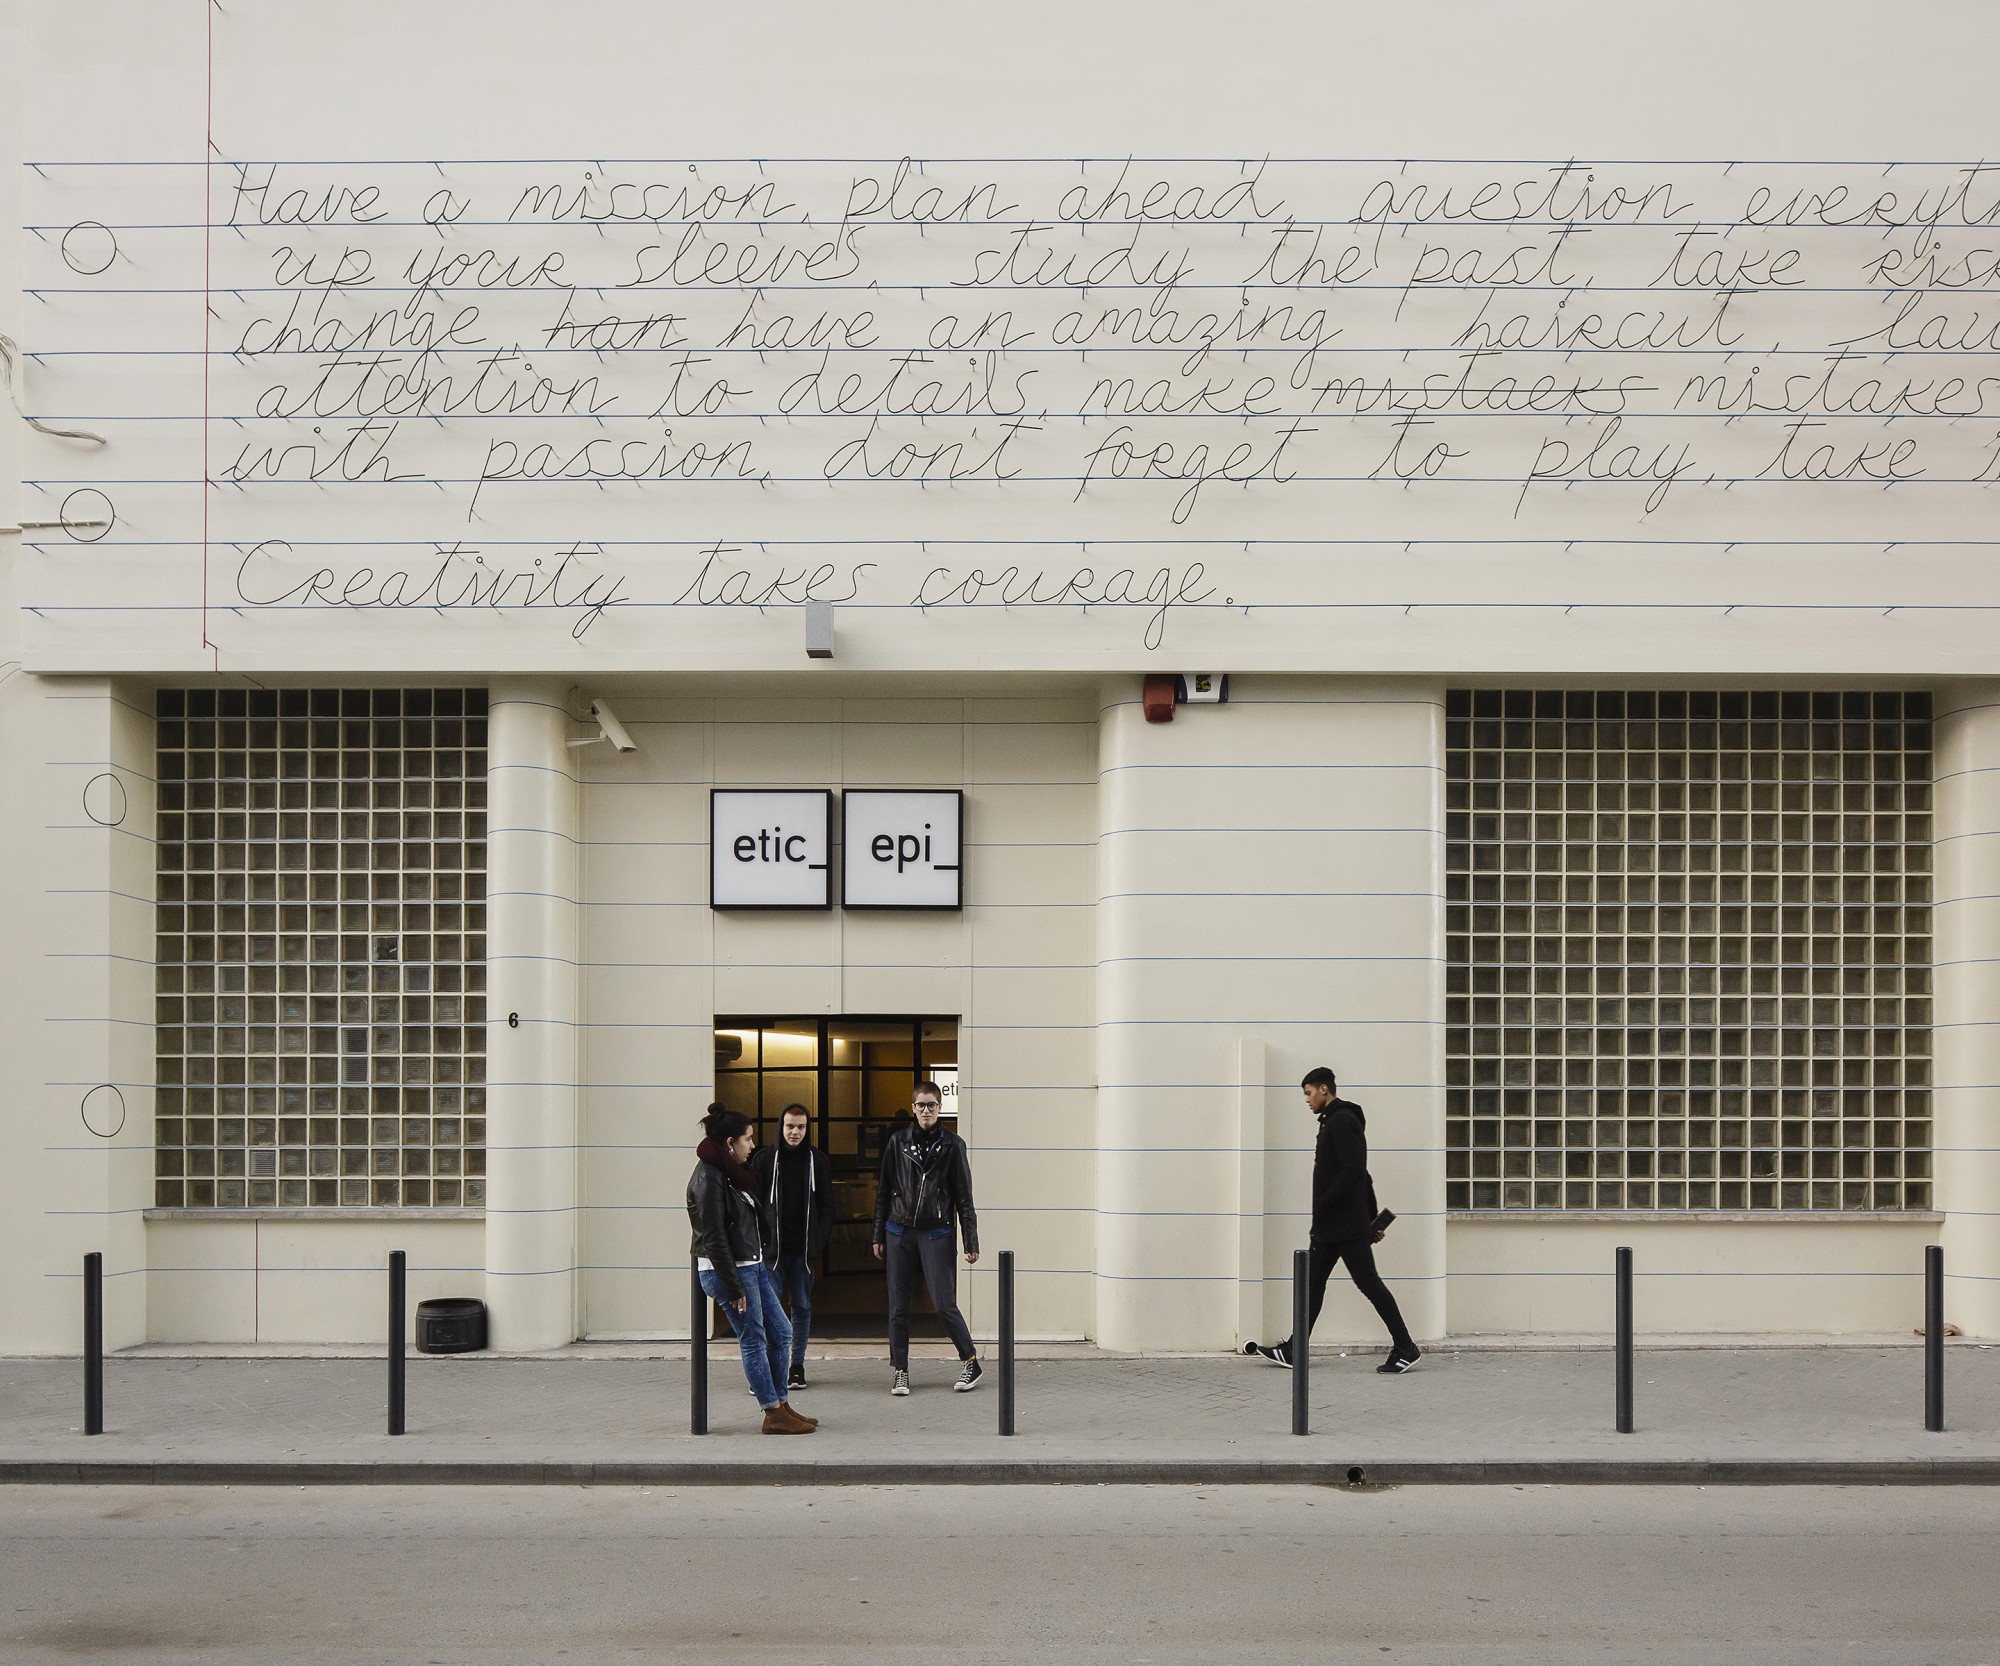 Have a mission, plan ahead, question everyt
up your sleeves, study the past, take risk
change, han have an amazing haircut, lau
attention to details, make mistaeks mistakes
with passion, don't forget to play, take
Creativity takes courage.
etic_ epi_
6
eti